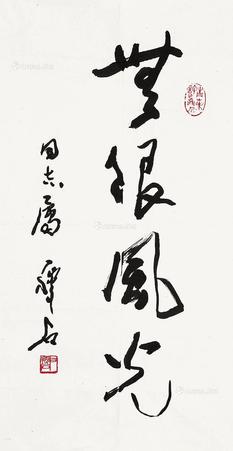 無限風光
同志属